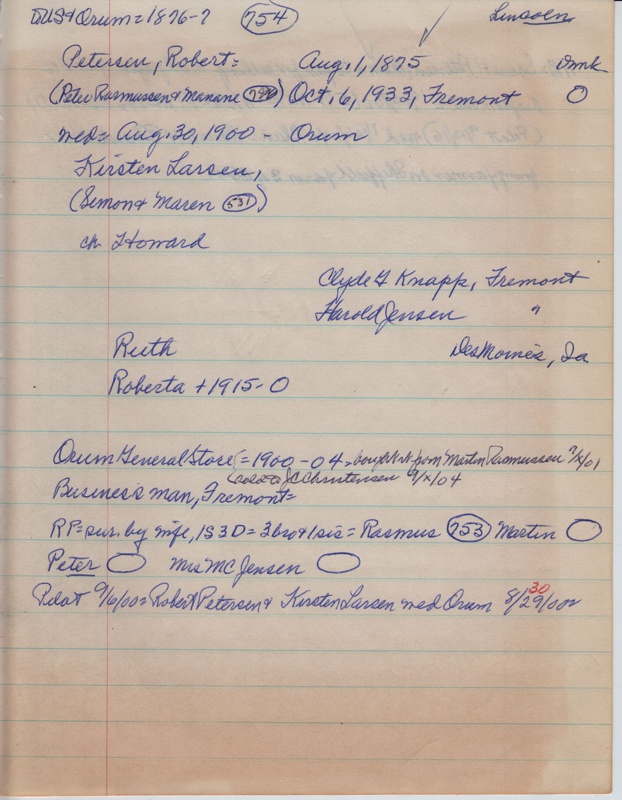 US & Orum = 1876-7 754 Lincoln
Petersen, Robert = Aug. 1, 1875 Dmk
(Peter Rasmussen & Mariane) Oct. 6, 1933, Fremont O
med = Aug. 30, 1900 - Orum
Kirsten Larsen,
(Simon & Maren 531)
ch Howard
Clyde G Knapp, Fremont
Harold Jensen "
Ruth Des Moines, Ia
Roberta + 1915 - O
Orum General Store = 1900-04 = bought it from Martin Rasmussen 9/X/01
(sold to JC Christensen 9/X/04
Business man, Fremont =
RP = sur. by wife, 1S 3D = 3 bro & 1 sis = Rasmus 753 Martin
Peter Mrs MC Jensen
Pilot 9/6/00 = Robert Petersen & Kirsten Larsen med Orum 8/29/00
30